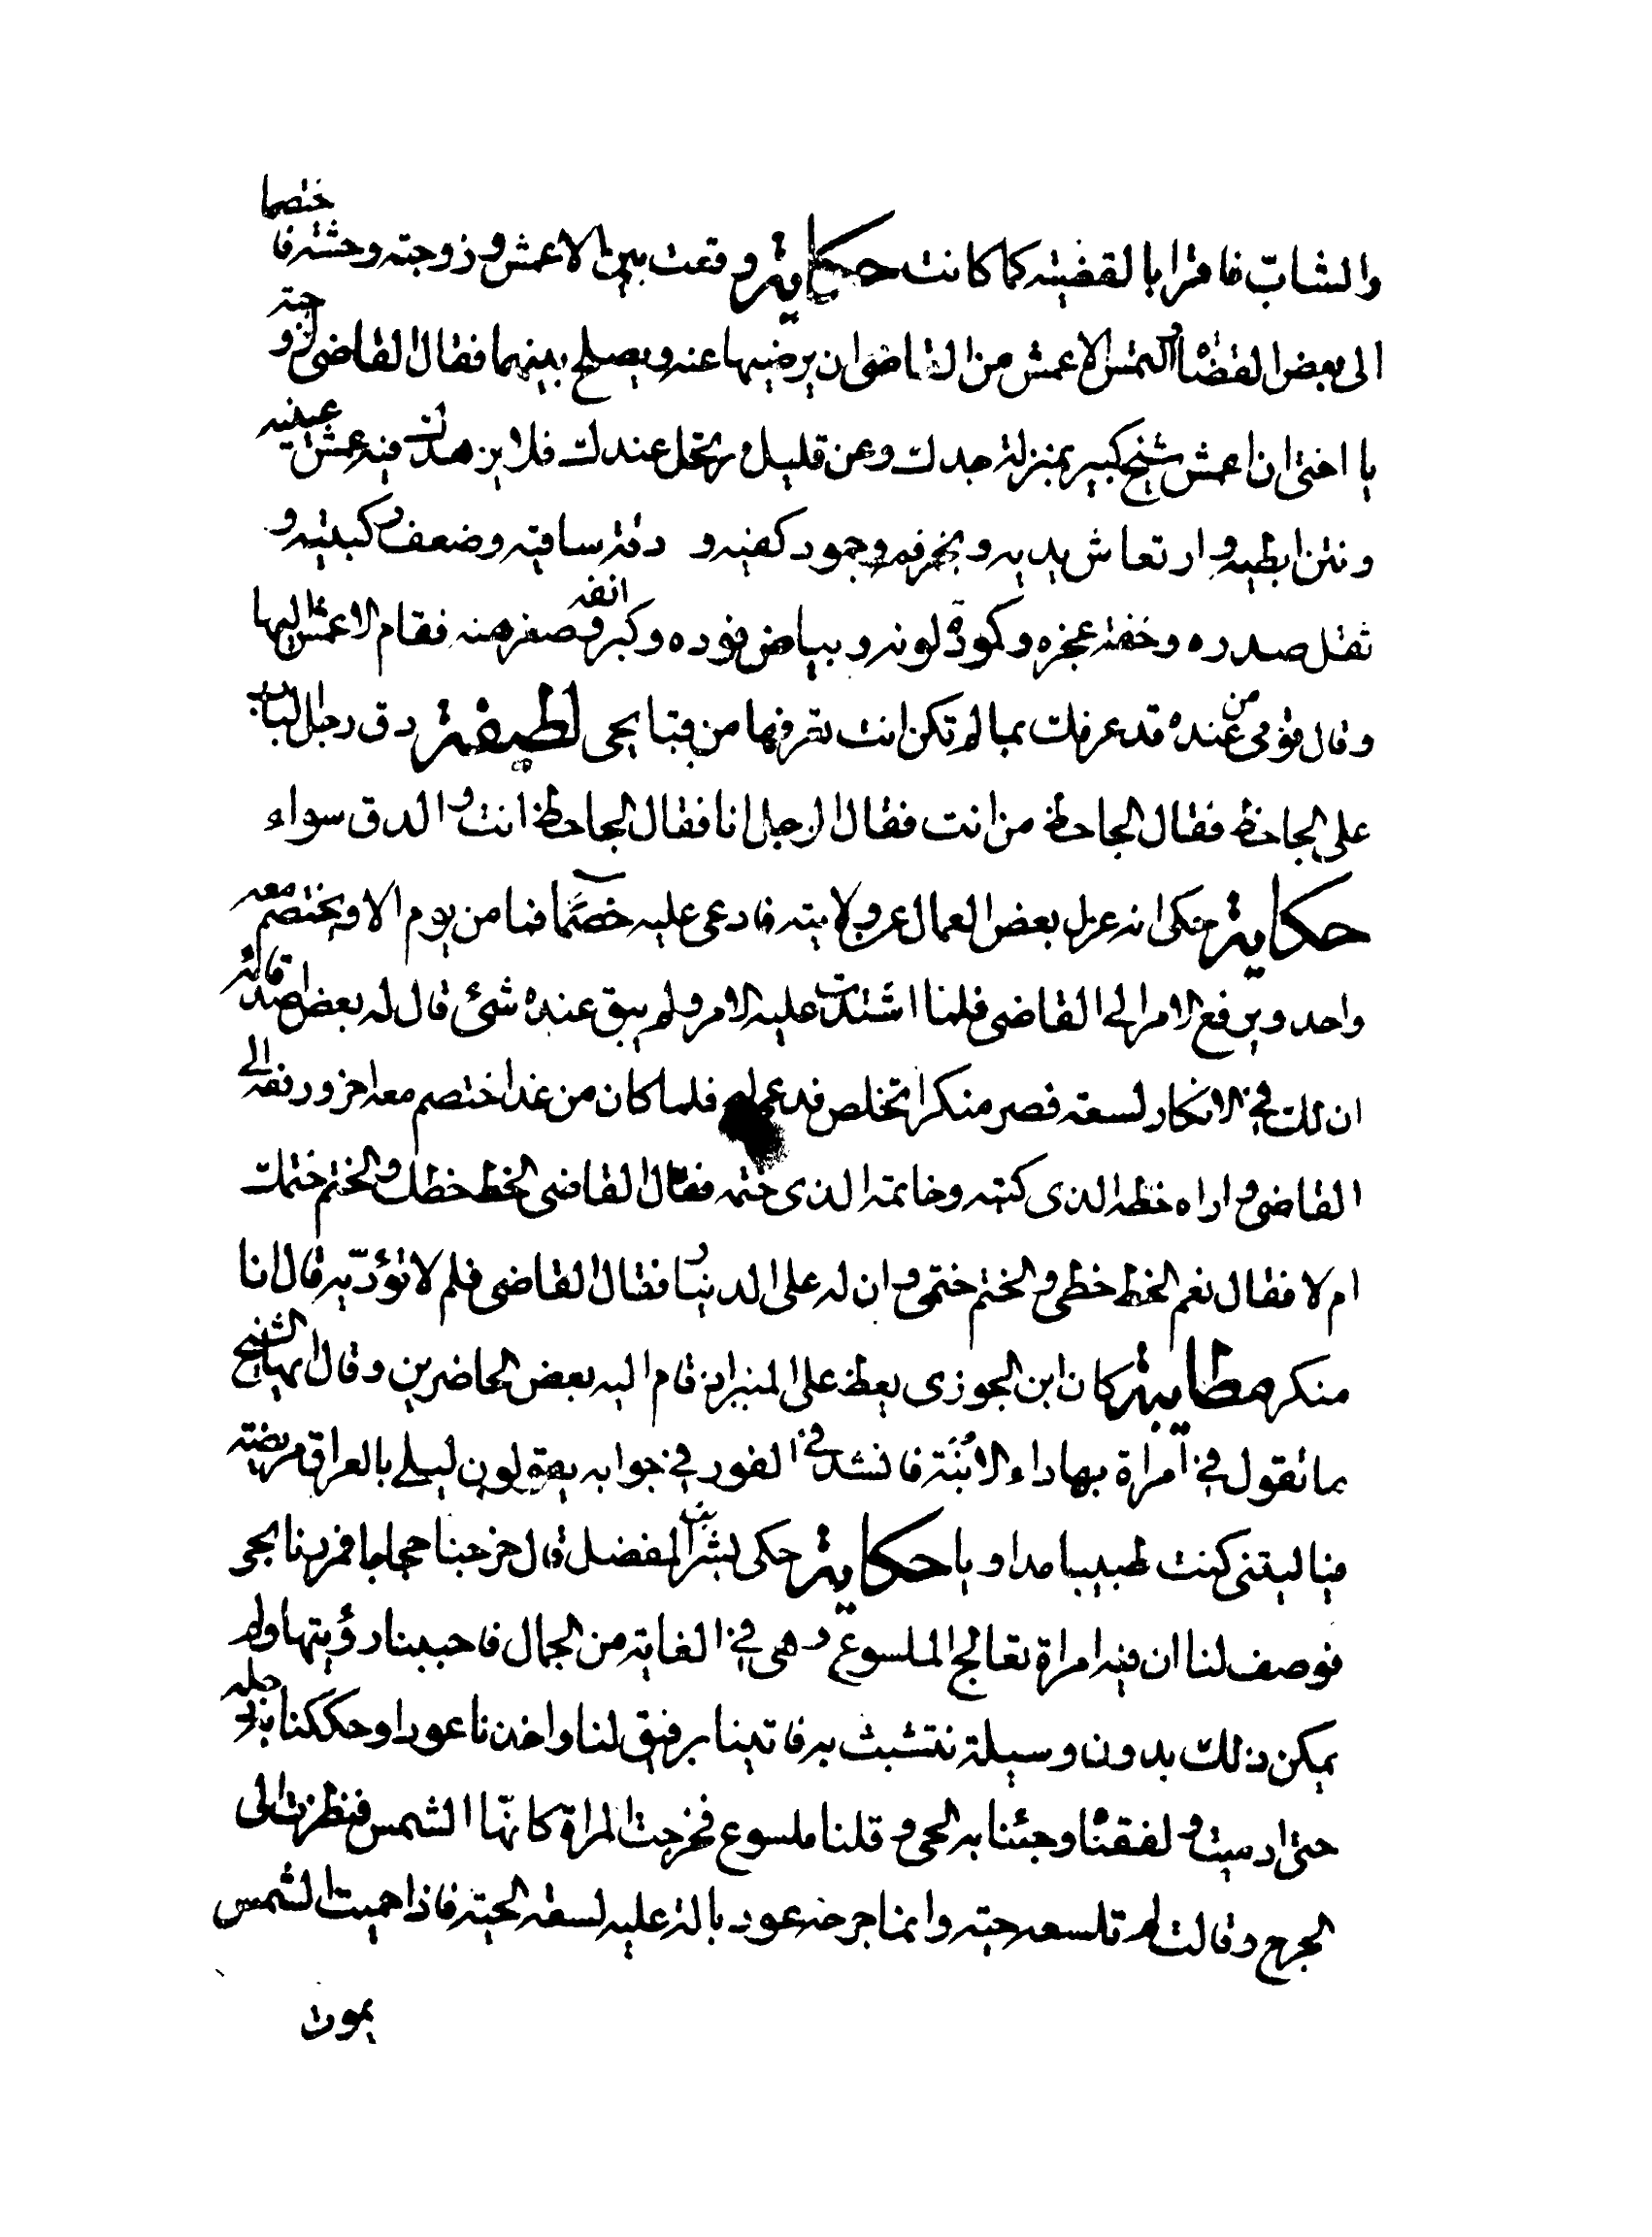 والشابّ فاقرا بالقضية كما كانت حكاية وقعت بين الاعمش وزوجته وحشة فاختصما
الى بعض القضاة والتمس الاعمش من القاضى ان يرضيها عنه ويصلح بينهما فقال القاضى لزوجته
يا اختى ان اعمش شيخ كبير بمنزلة جدك وعن قليل يرتحل عندك فلا يزهدك فيه عمش عينيه
ونتن ابطيه وارتعاش يديه وبخر فمه وجمود كفيه و دقة ساقيه وضعف ركبتيه و
ثقل صدره وخفة عجزه وكمودة لونه وبياض فوده وكبر انفه وصغر هنه فقام الاعمش اليها
وقال قومى من عنده قد عرفك بما لم تكن انت تعرفها من قبايحى لطيفة دق رجل الباب
على الجاحظ فقال الجاحظ من انت فقال الرجل انا فقال الجاحظ انت والدق سواء
حكاية حكى انه عزل بعض العمال عن ولايته فادعى عليه خصما فما من يوم الا ويختصم معه
واحد ويرفع الامر الى القاضى فلما اشتدت عليه الامر ولم يبق عنده شئ قال له بعض اصدقائه
ان لك فى الانكار لسعة فصر منكرا تخلص فلما كان من غد اختصم معه اخر ورفعه الى
القاضى واراه خطه الذى كتبه وخاتمه الذى ختمه فقال القاضى الخط خطك والختم ختمك
ام لا فقال نعم الخط خطى والختم ختمى وان له على الدنيا فقال القاضى فلم لا تؤدّيه قال انا
منكر مطايبة كان ابن الجوزى يعظ على المنبر اذ قام اليه بعض الحاضرين وقال ايها الشيخ
ما تقول فى امراة بها داء الابنة فانشد فى الفور فى جوابه يقولون ليلى بالعراق مريضة
فيا ليتنى كنت طبيبا مداويا حكاية حكى بشر بن المفضل قال خرجنا حجاجا فمررنا بحى
فوصف لنا ان فيه امراة تعالج الملسوع وهى فى الغاية من الجمال فاحببنا رؤيتها ولم
يمكن ذلك بدون وسيلة نتشبث به فاتينا برفيق لنا واخذنا عودا وحككنا به رجله
حتى ادميت ولفقناه وجئنا به الحى وقلنا ملسوع فخرجت المراة كانّها الشمس فنظرت الى
الجرح وقالت لم تلسعه حية وانما جرحه عود بالة عليه لسعة الحية فاذا حميت الشمس
يموت